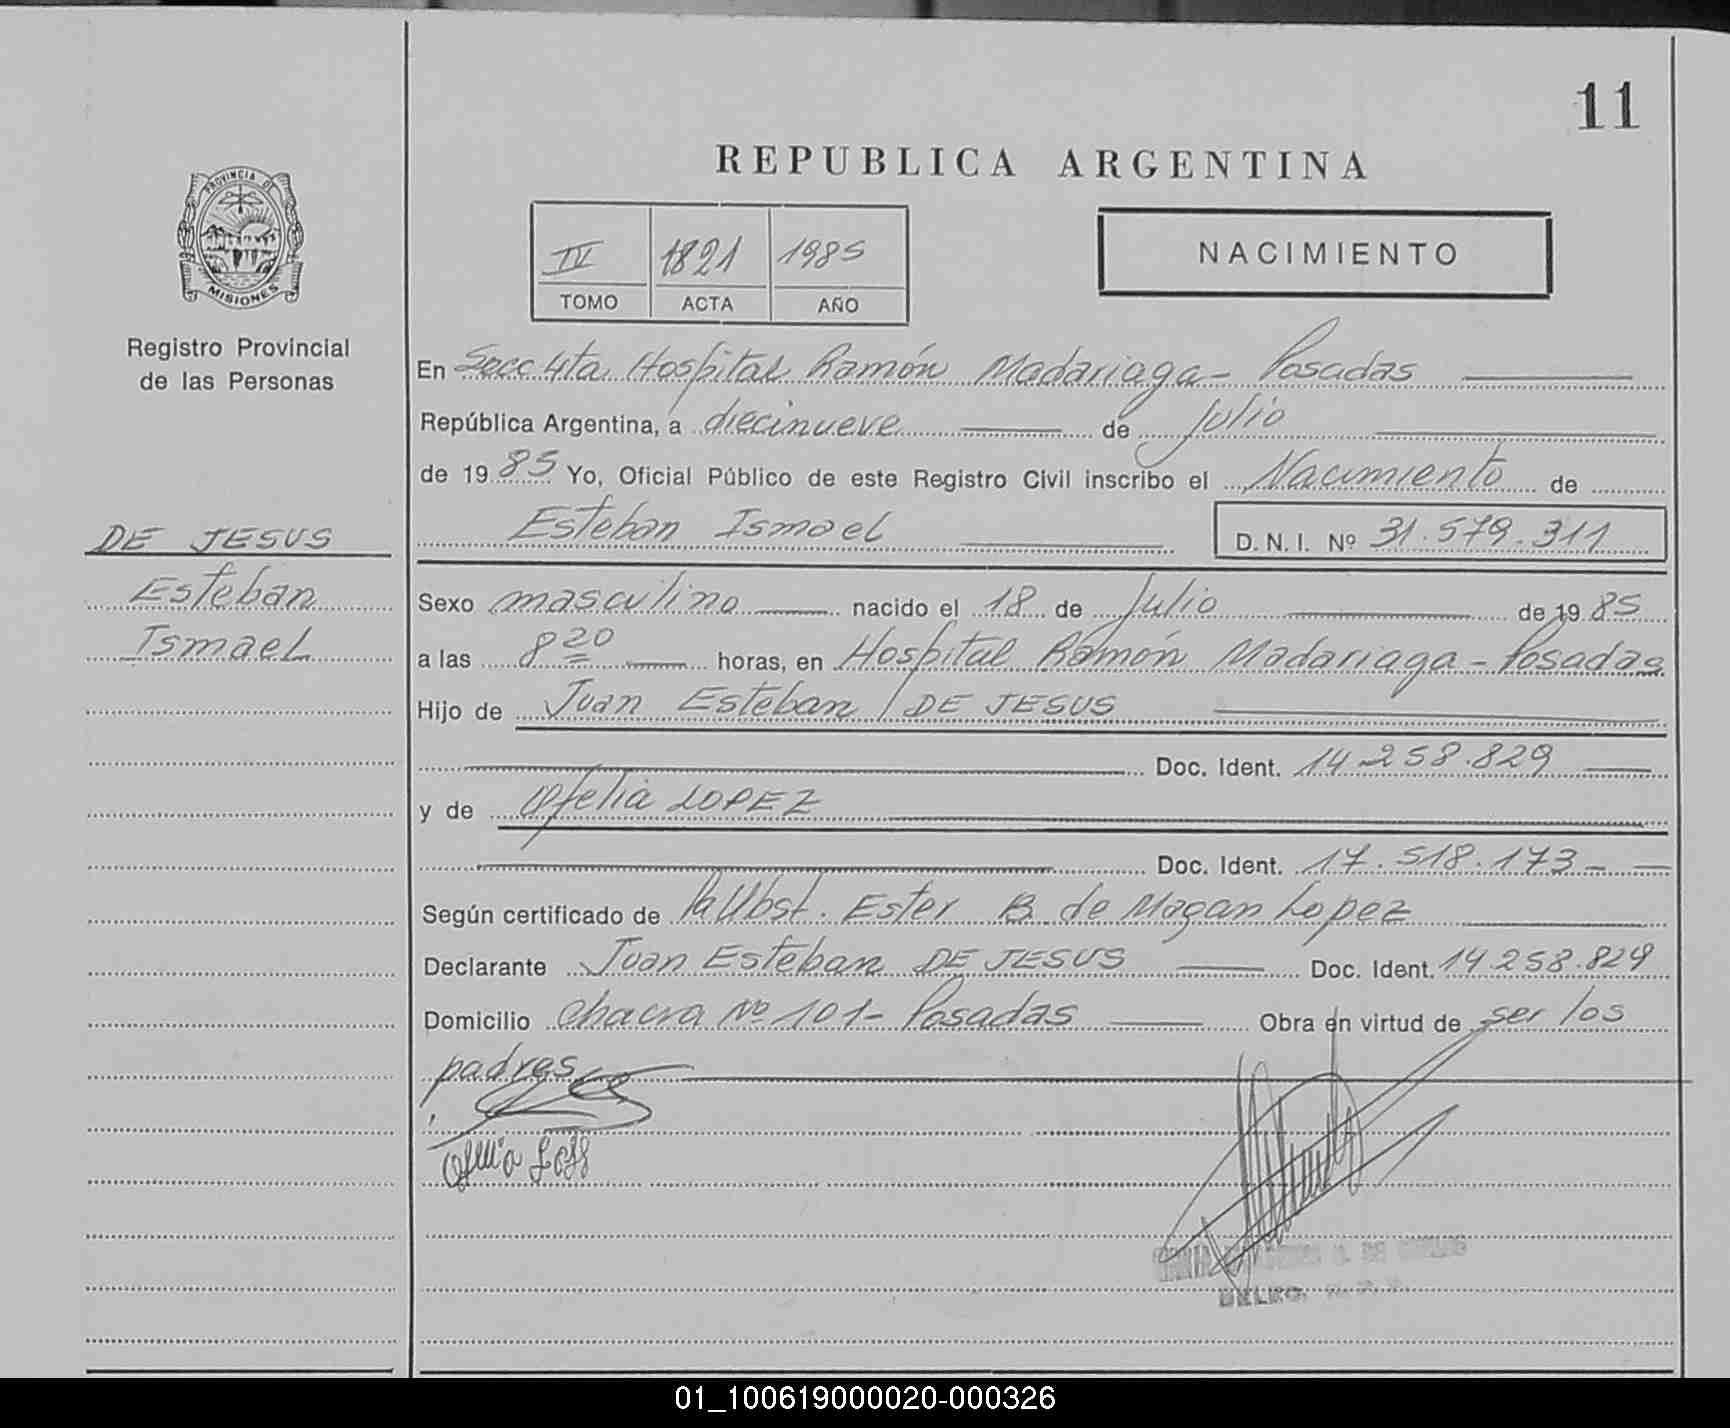 11
REPUBLICA ARGENTINA
PROVINCIA DE
MISIONES
Registro Provincial
de las Personas
IV 1821 1985
TOMO ACTA AÑO
NACIMIENTO
En Secc 4ta. Hospital Ramón Madariaga - Posadas
República Argentina, a diecinueve de Julio
de 1985 Yo, Oficial Público de este Registro Civil inscribo el Nacimiento de
Esteban Ismael D. N. I. Nº 31.579.311
DE JESUS
Esteban
Ismael
Sexo masculino nacido el 18 de Julio de 1985
a las 8 20 horas, en Hospital Ramón Madariaga - Posadas
Hijo de Juan Esteban / DE JESUS
Doc. Ident. 14.258.829
y de Ofelia LOPEZ
Doc. Ident. 17.518.173 -
Según certificado de Obst. Ester B. de Magan Lopez
Declarante Juan Esteban DE JESUS Doc. Ident. 14.258.829
Domicilio Chacra Nº 101 - Posadas Obra en virtud de ser los
padres
DELEG.
01_100619000020-000326